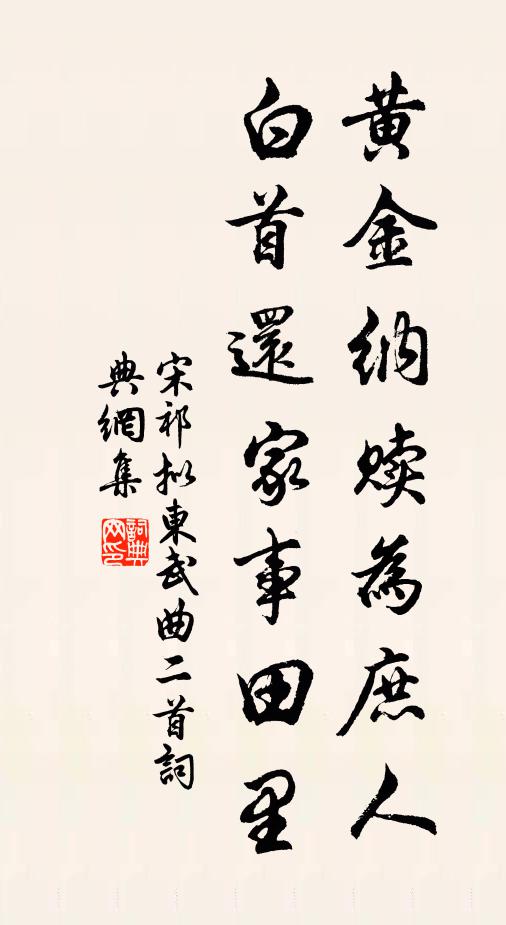 黃金納贖為庶人
白首還家事田里
宋祁拟東武曲二首詞
典網集
詞典
网印